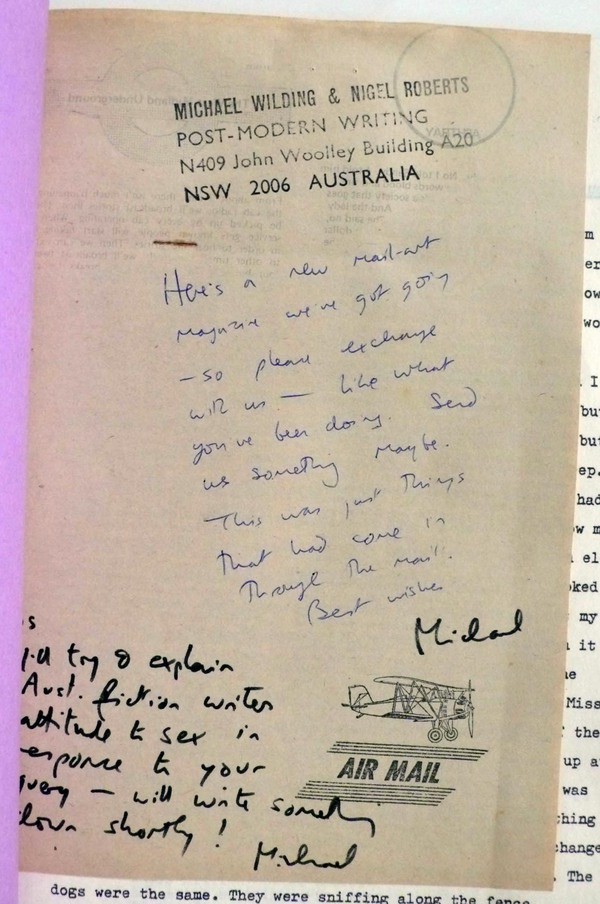 MICHAEL WILDING & NIGEL ROBERTS
POST-MODERN WRITING
N409 John Woolley Building A20
NSW 2006 AUSTRALIA
Here's a new mail-art
magazine we've got going
– so please exchange
with us – like what
you've been doing. Send
us something maybe.
This was just things
that had come in
through the mail.
Best wishes
Michael
s
I'll try & explain
Aust. fiction writers
attitude to sex in
response to your
query – will write something
down shortly!
Michael
AIR MAIL
m
er
ow
wo
I
but
but
ep.
had
ow m
el
ked
my
it
e
Miss
the
up a
was
hing
change
. The
dogs were the same. They were sniffing along the fence